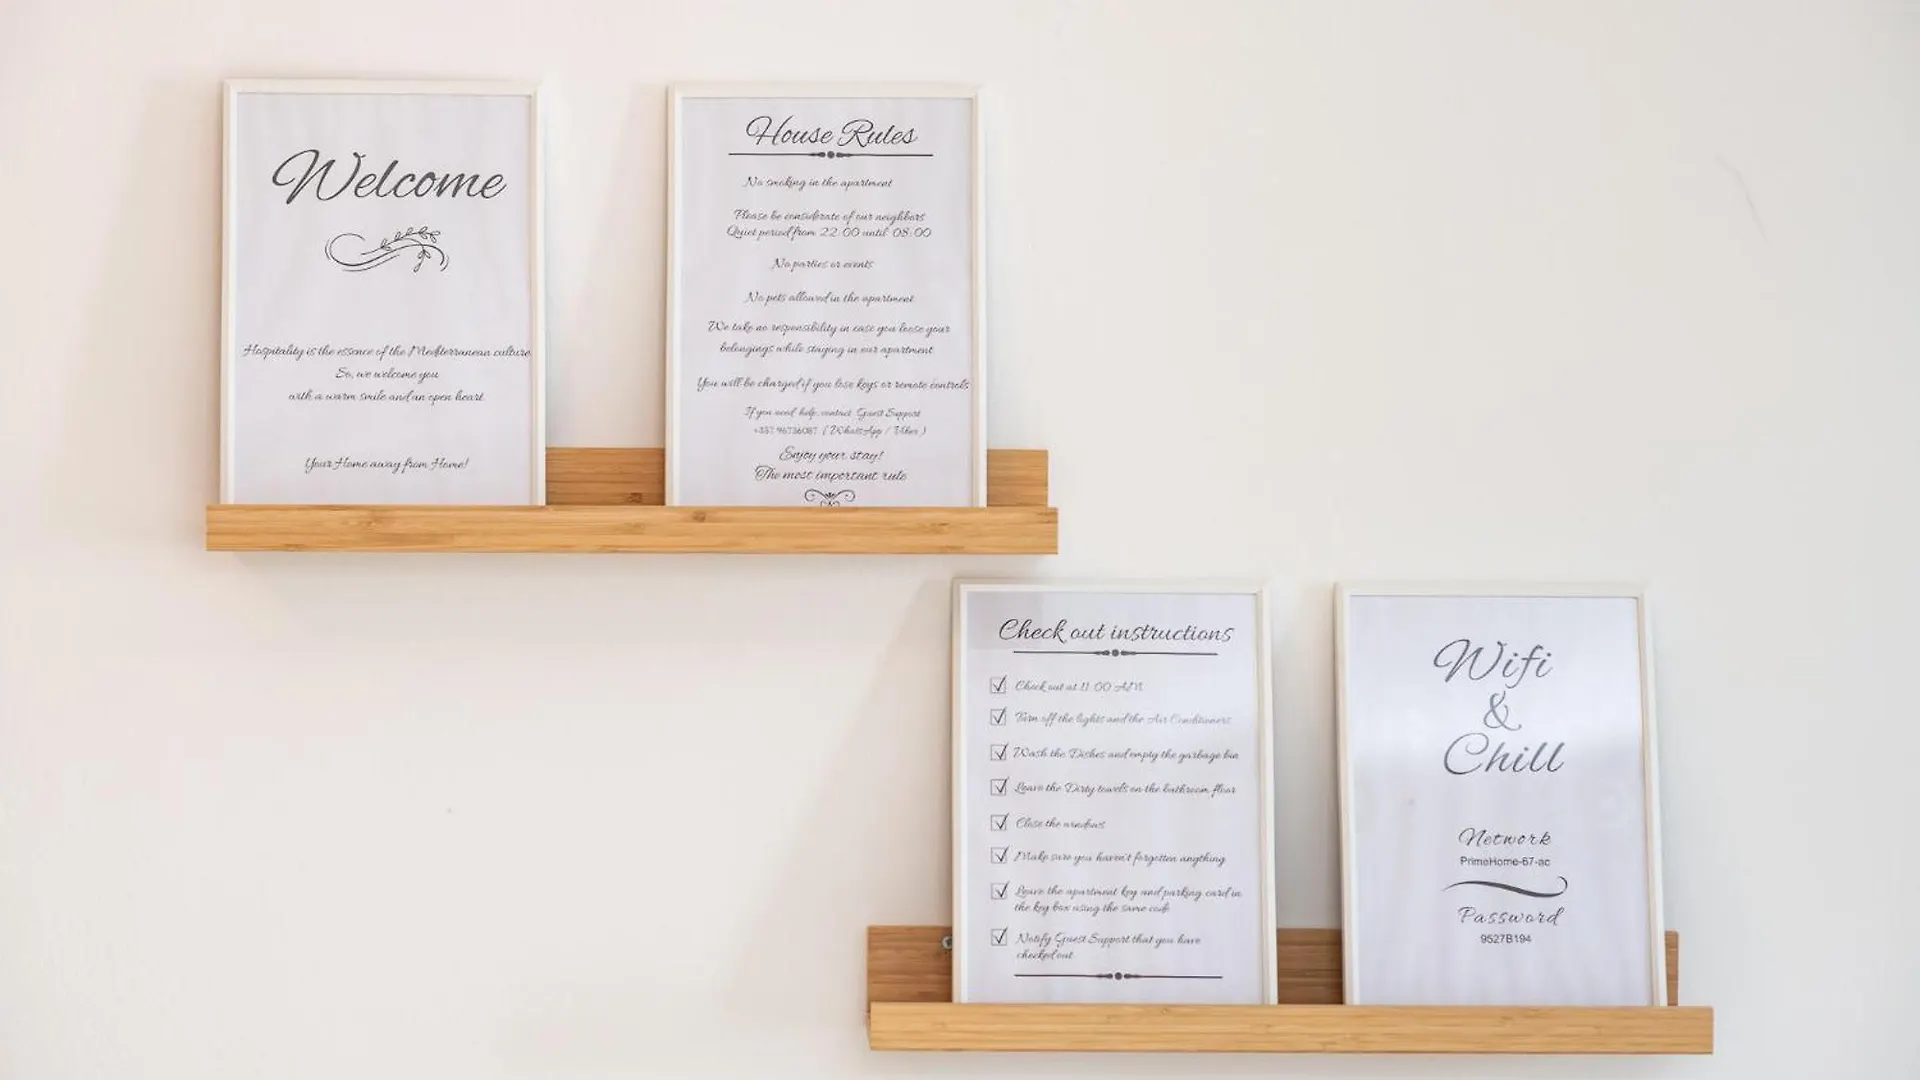 Welcome
Hospitality is the essence of the Mediterranean culture
So, we welcome you
with a warm smile and an open heart
Your Home away from Home!
House Rules
No smoking in the apartment
Please be considerate of our neighbors
Quiet period from 22:00 until 08:00
No parties or events
No pets allowed in the apartment
We take no responsibility in case you loose your
belongings while staying in our apartment
You will be charged if you lose keys or remote controls
If you need help, contact Guest Support
(WhatsApp / Viber)
Enjoy your stay!
The most important rule
Check out instructions
Check out at 11:00 AM
Turn off the lights and the Air Conditioners
Wash the Dishes and empty the garbage bin
Leave the Dirty towels on the bathroom floor
Close the windows
Make sure you haven't forgotten anything
Leave the apartment key and parking card in
the key box using the same code
Notify Guest Support that you have
checked out
Wifi
&
Chill
Network
PrimeHome-67-ac
Password
9527B194